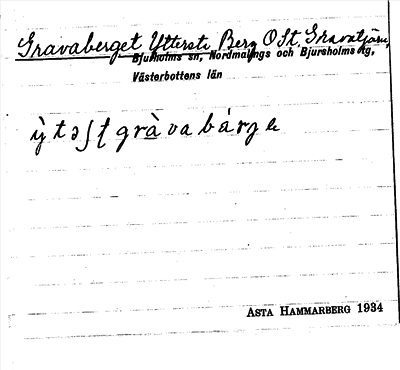 Gravaberget Ytterst Berg O St. Gravatjärn,
Bjurholms sn, Nordmalings och Bjursholms tg,
Västerbottens län
ỳtəʃt gràvabárgə
ASTA HAMMARBERG 1934